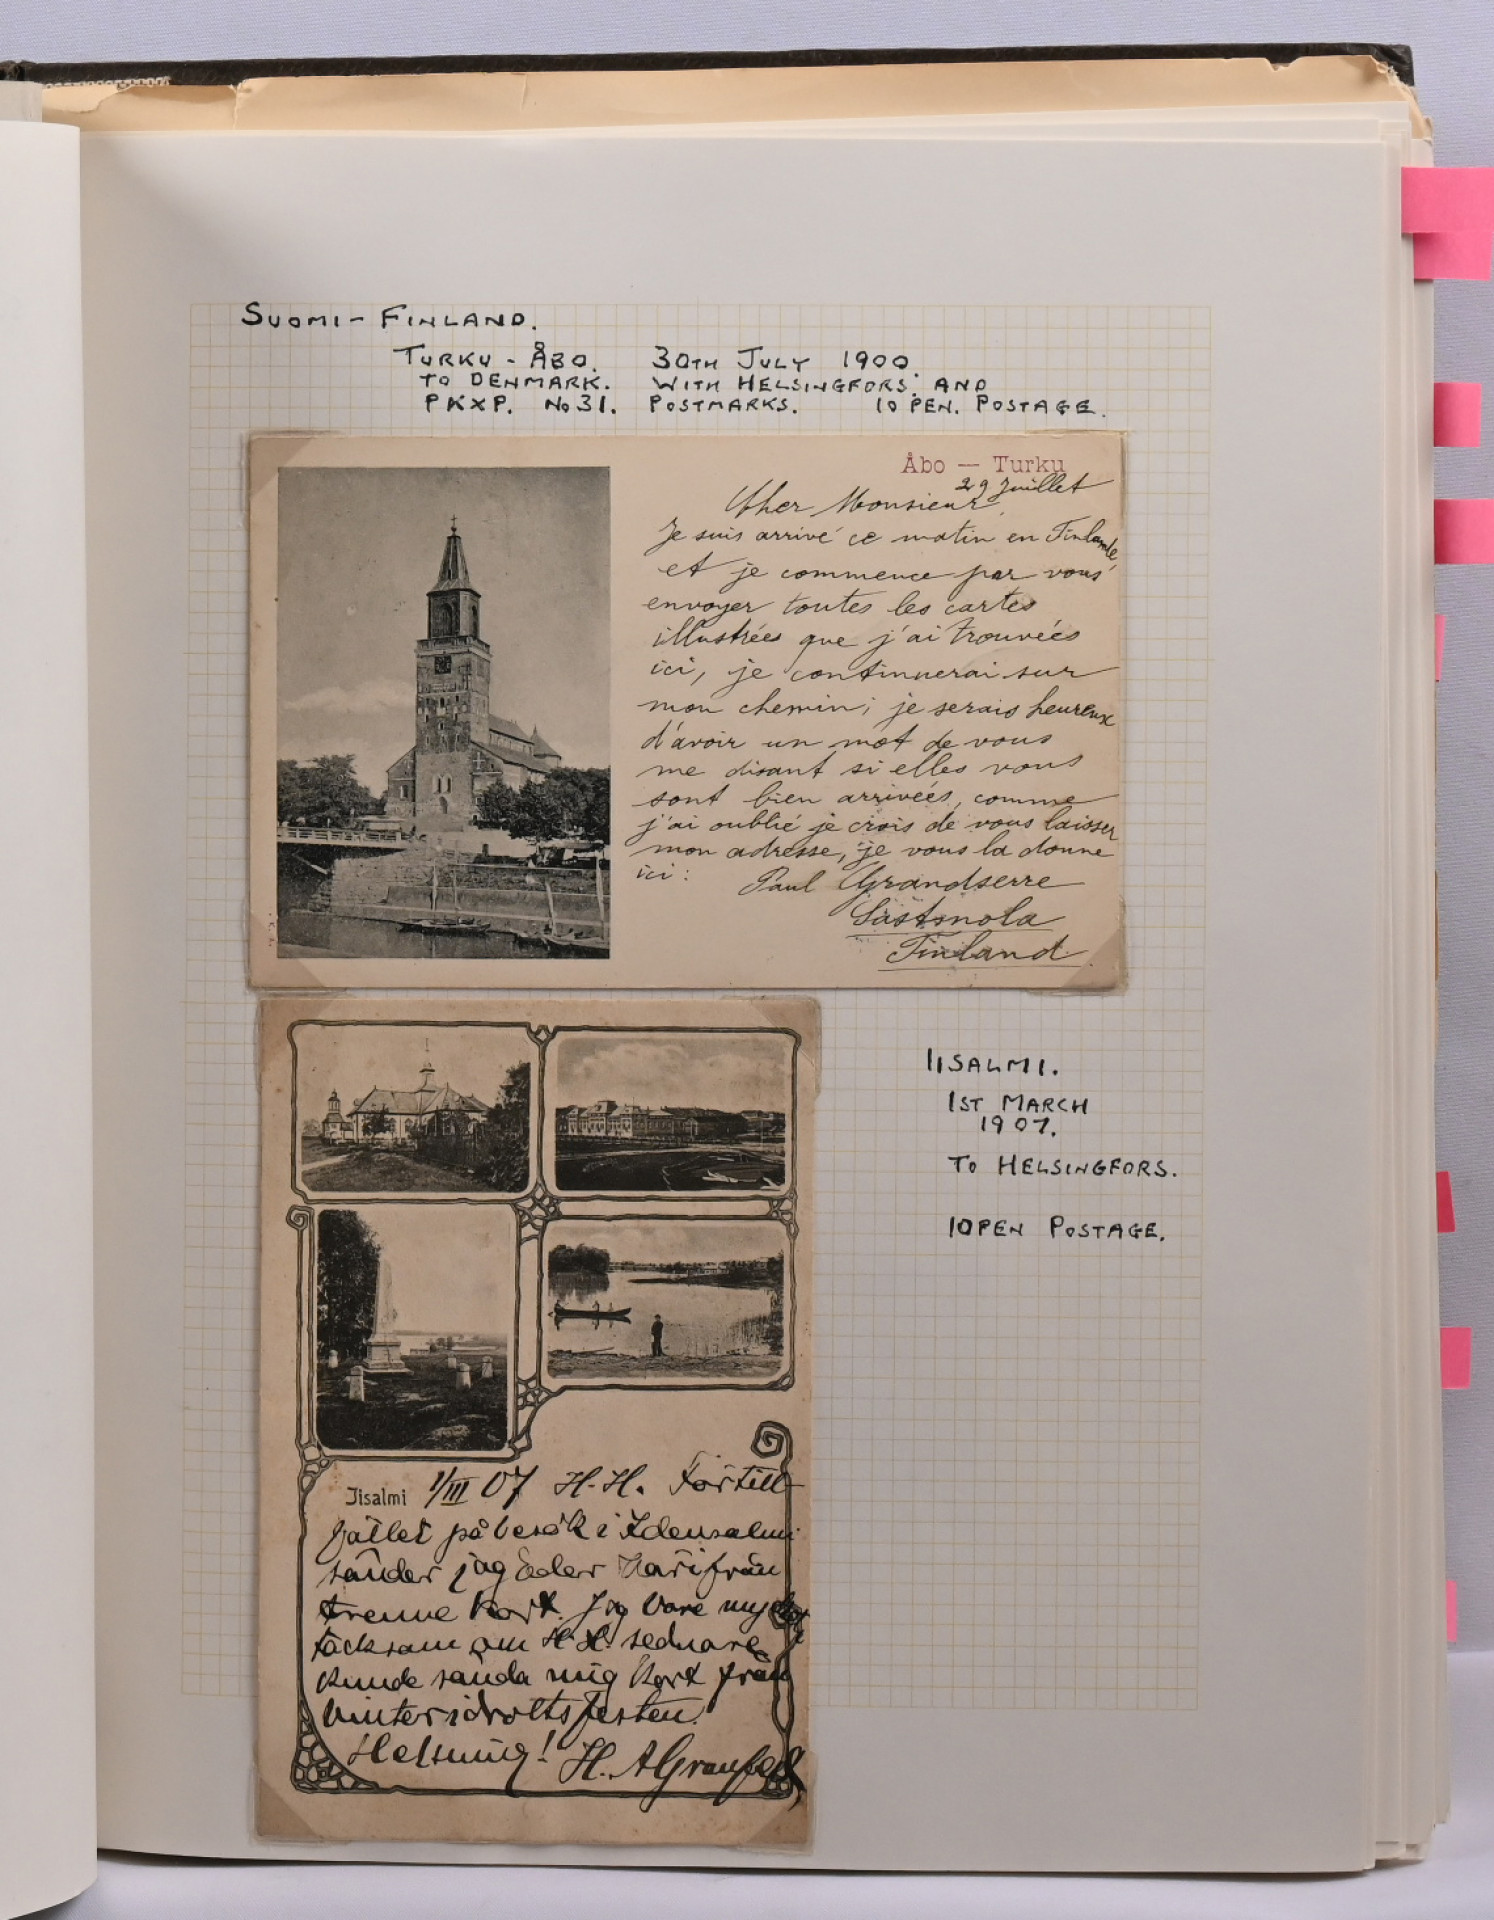 SUOMI - FINLAND.
TURKU - ÅBO. 30TH JULY 1900.
TO DENMARK. WITH HELSINGFORS. AND
PKXP. No 31. POSTMARKS. 10 PEN. POSTAGE.
Åbo — Turku
29 Juillet
Cher Monsieur,
Je suis arrivé ce matin en Finlande,
et je commence par vous
envoyer toutes les cartes
illustrées que j'ai trouvées
ici, je continuerai sur
mon chemin; je serais heureux
d'avoir un mot de vous
me disant si elles vous
sont bien arrivées, comme
j'ai oublié je crois de vous laisser
mon adresse, je vous la donne
ici: Paul Grandserre
Finland
IISALMI.
1ST MARCH
1907.
TO HELSINGFORS.
10PEN POSTAGE.
Iisalmi 1/III 07 H.H. För till-
fället på besök i Idensalmi
sänder jag Eder härifrån
trenne kort. Jag vore mycket
tacksam om H.H. sednare
kunde sända mig kort från
vinteridrottsfesten.
Helsning! H. A